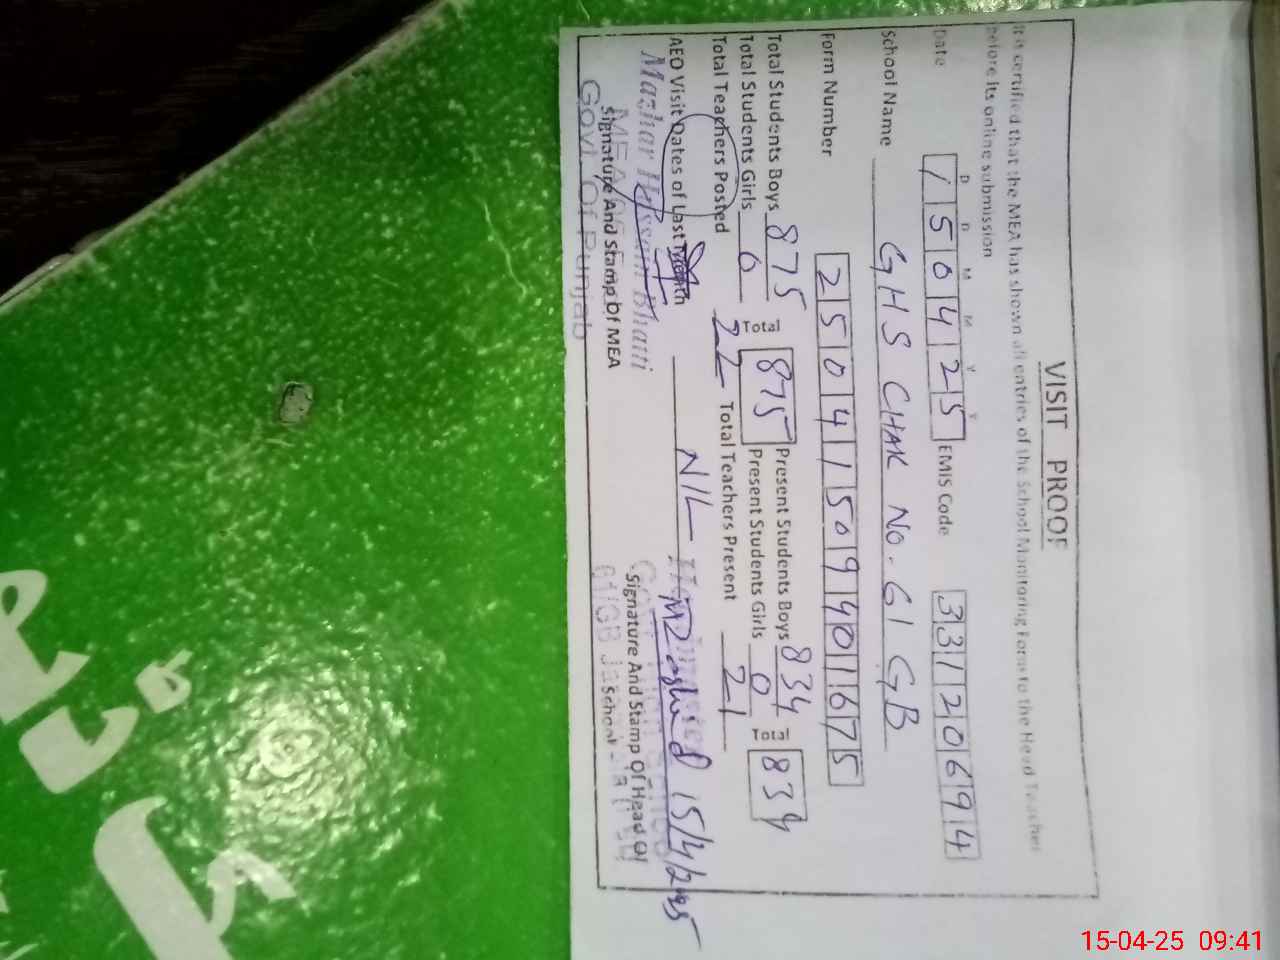 VISIT PROOF
It is certified that the MEA has shown all entries of the School Monitoring Form to the Head Teacher
before its online submission
D D M M Y Y
Date 150425 EMIS Code 33120694
School Name GHS CHAK NO. 61 GB
Form Number 25041509401675
Total Students Boys 875 Present Students Boys 834
Total 875 Total 834
Total Students Girls 0 Present Students Girls 0
Total Teachers Posted 22 Total Teachers Present 21
AEO Visit Dates of Last Month NIL
15/4/2025
Mazhar Hussain Bhatti
Signature And Stamp of MEA
Signature And Stamp Of Head Of
School
Govt. Of Punjab
61/GB
15-04-25 09:41